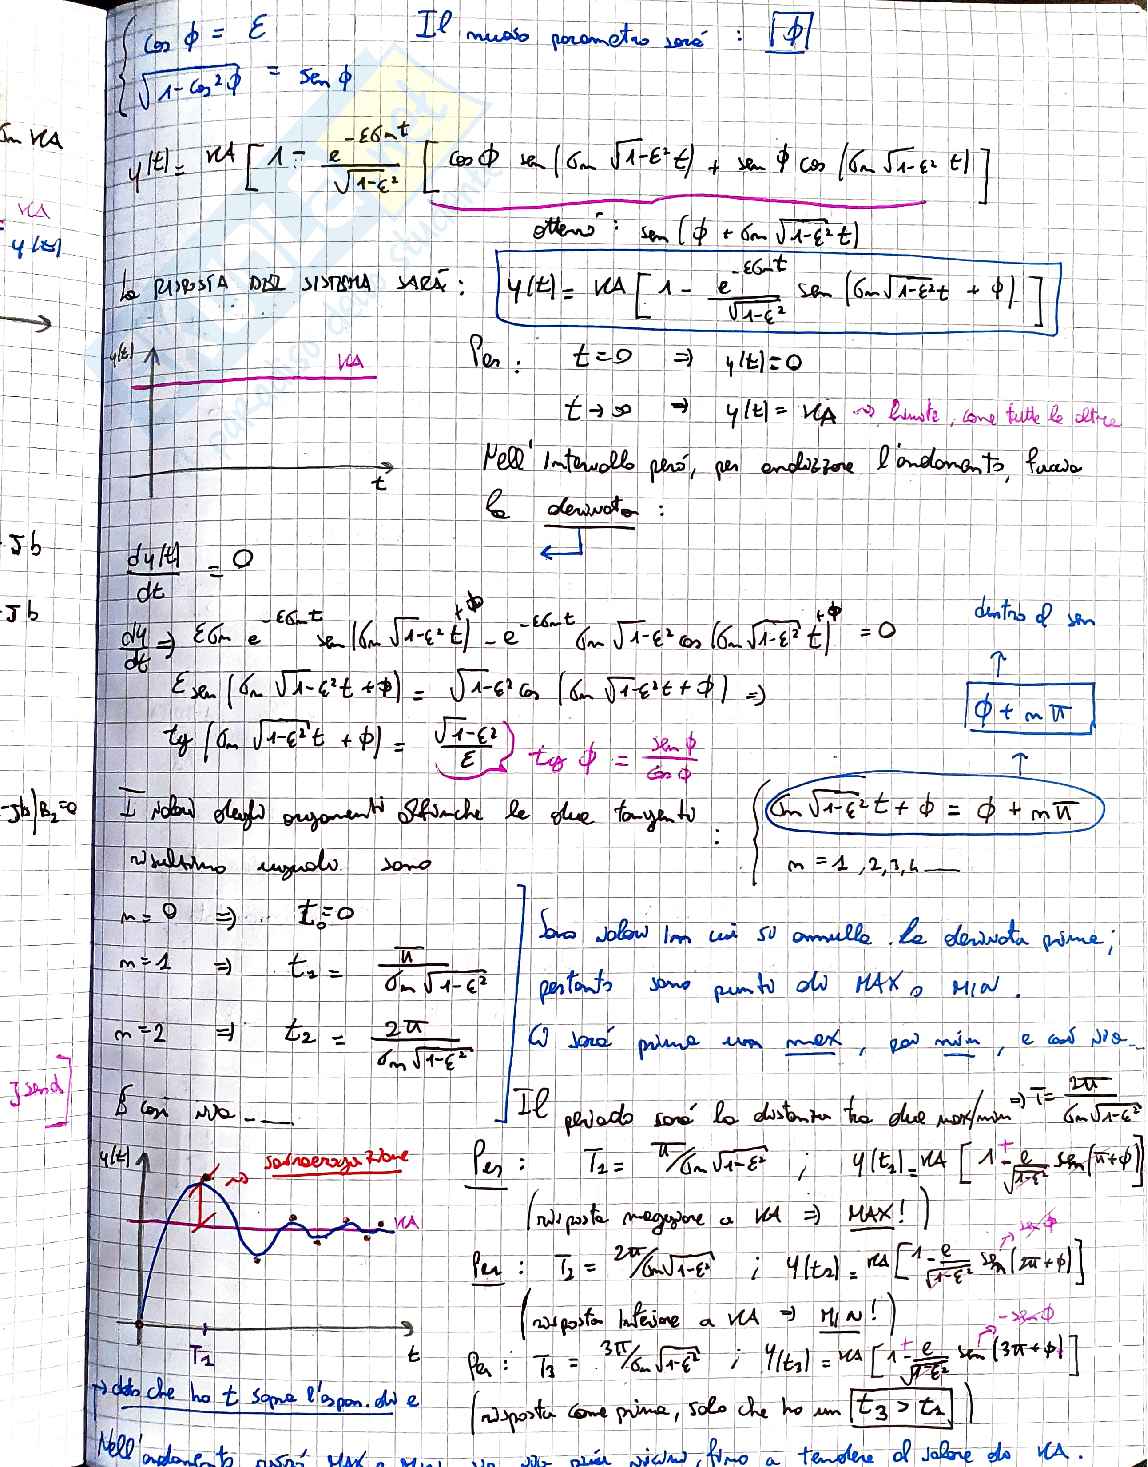 cos φ = ε Il nuovo parametro sarà : φ
√1-cos²φ = sen φ
y(t) = KA [ 1 - e^{-εσnt}/√1-ε² [ cos φ sen (σn √1-ε² t) + sen φ cos (σn √1-ε² t) ]
otterrò : sen (φ + σn √1-ε² t)
La RISPOSTA DEL SISTEMA SARÀ : y(t) = KA [ 1 - e^{-εσnt}/√1-ε² sen (σn √1-ε² t + φ) ]
y(t) KA t
Per : t = 0 ⇒ y(t) = 0
t → ∞ ⇒ y(t) = KA ~> limite, come tutte le altre
Nell' intervallo però, per analizzare l'andamento, faccio
la derivata :
dy(t)/dt = 0
dy/dt ⇒ εσn e^{-εσnt} sen (σn √1-ε² t + φ) - e^{-εσnt} σn √1-ε² cos (σn √1-ε² t + φ) = 0
dentro il sen
ε sen (σn √1-ε² t + φ) = √1-ε² cos (σn √1-ε² t + φ) ⇒
φ + nπ
tg (σn √1-ε² t + φ) = √1-ε²/ε } tg φ = sen φ/cos φ
I valori degli argomenti affinché le due tangenti :
risultino uguali sono
σn √1-ε² t + φ = φ + nπ
n = 1, 2, 3, 4 __
n = 0 ⇒ t₀ = 0
n = 1 ⇒ t₁ = π/σn √1-ε²
n = 2 ⇒ t₂ = 2π/σn √1-ε²
E così via ___
Sono valori in cui si annulla la derivata prima;
pertanto sono punti di MAX o MIN.
Ci sarà prima un max, poi min, e così via__
Il periodo sarà la distanza tra due max/min ⇒ T = 2π/σn √1-ε²
y(t) sovraelongazione KA T1 t
Per : T₁ = π/σn √1-ε² ; y(t₁) = KA [ 1 + e/√1-ε² sen (π+φ) ]
(risposta maggiore a KA ⇒ MAX!)
Per : T₂ = 2π/σn √1-ε² ; y(t₂) = KA [ 1 - e/√1-ε² sen (2π+φ) ] sen φ
(risposta inferiore a KA ⇒ MIN!)
Per : T₃ = 3π/σn √1-ε² ; y(t₃) = KA [ 1 + e/√1-ε² sen (3π+φ) ] -sen φ
(risposta come prima, solo che ho un t₃ > t₁)
→ dato che ho t sopra l'espon. di e
Nell'andamento MAX e MIN fino a tendere al valore di KA.
σn KA
KA
y(t)
-Jb
-Jb
-Jb|B₂=0